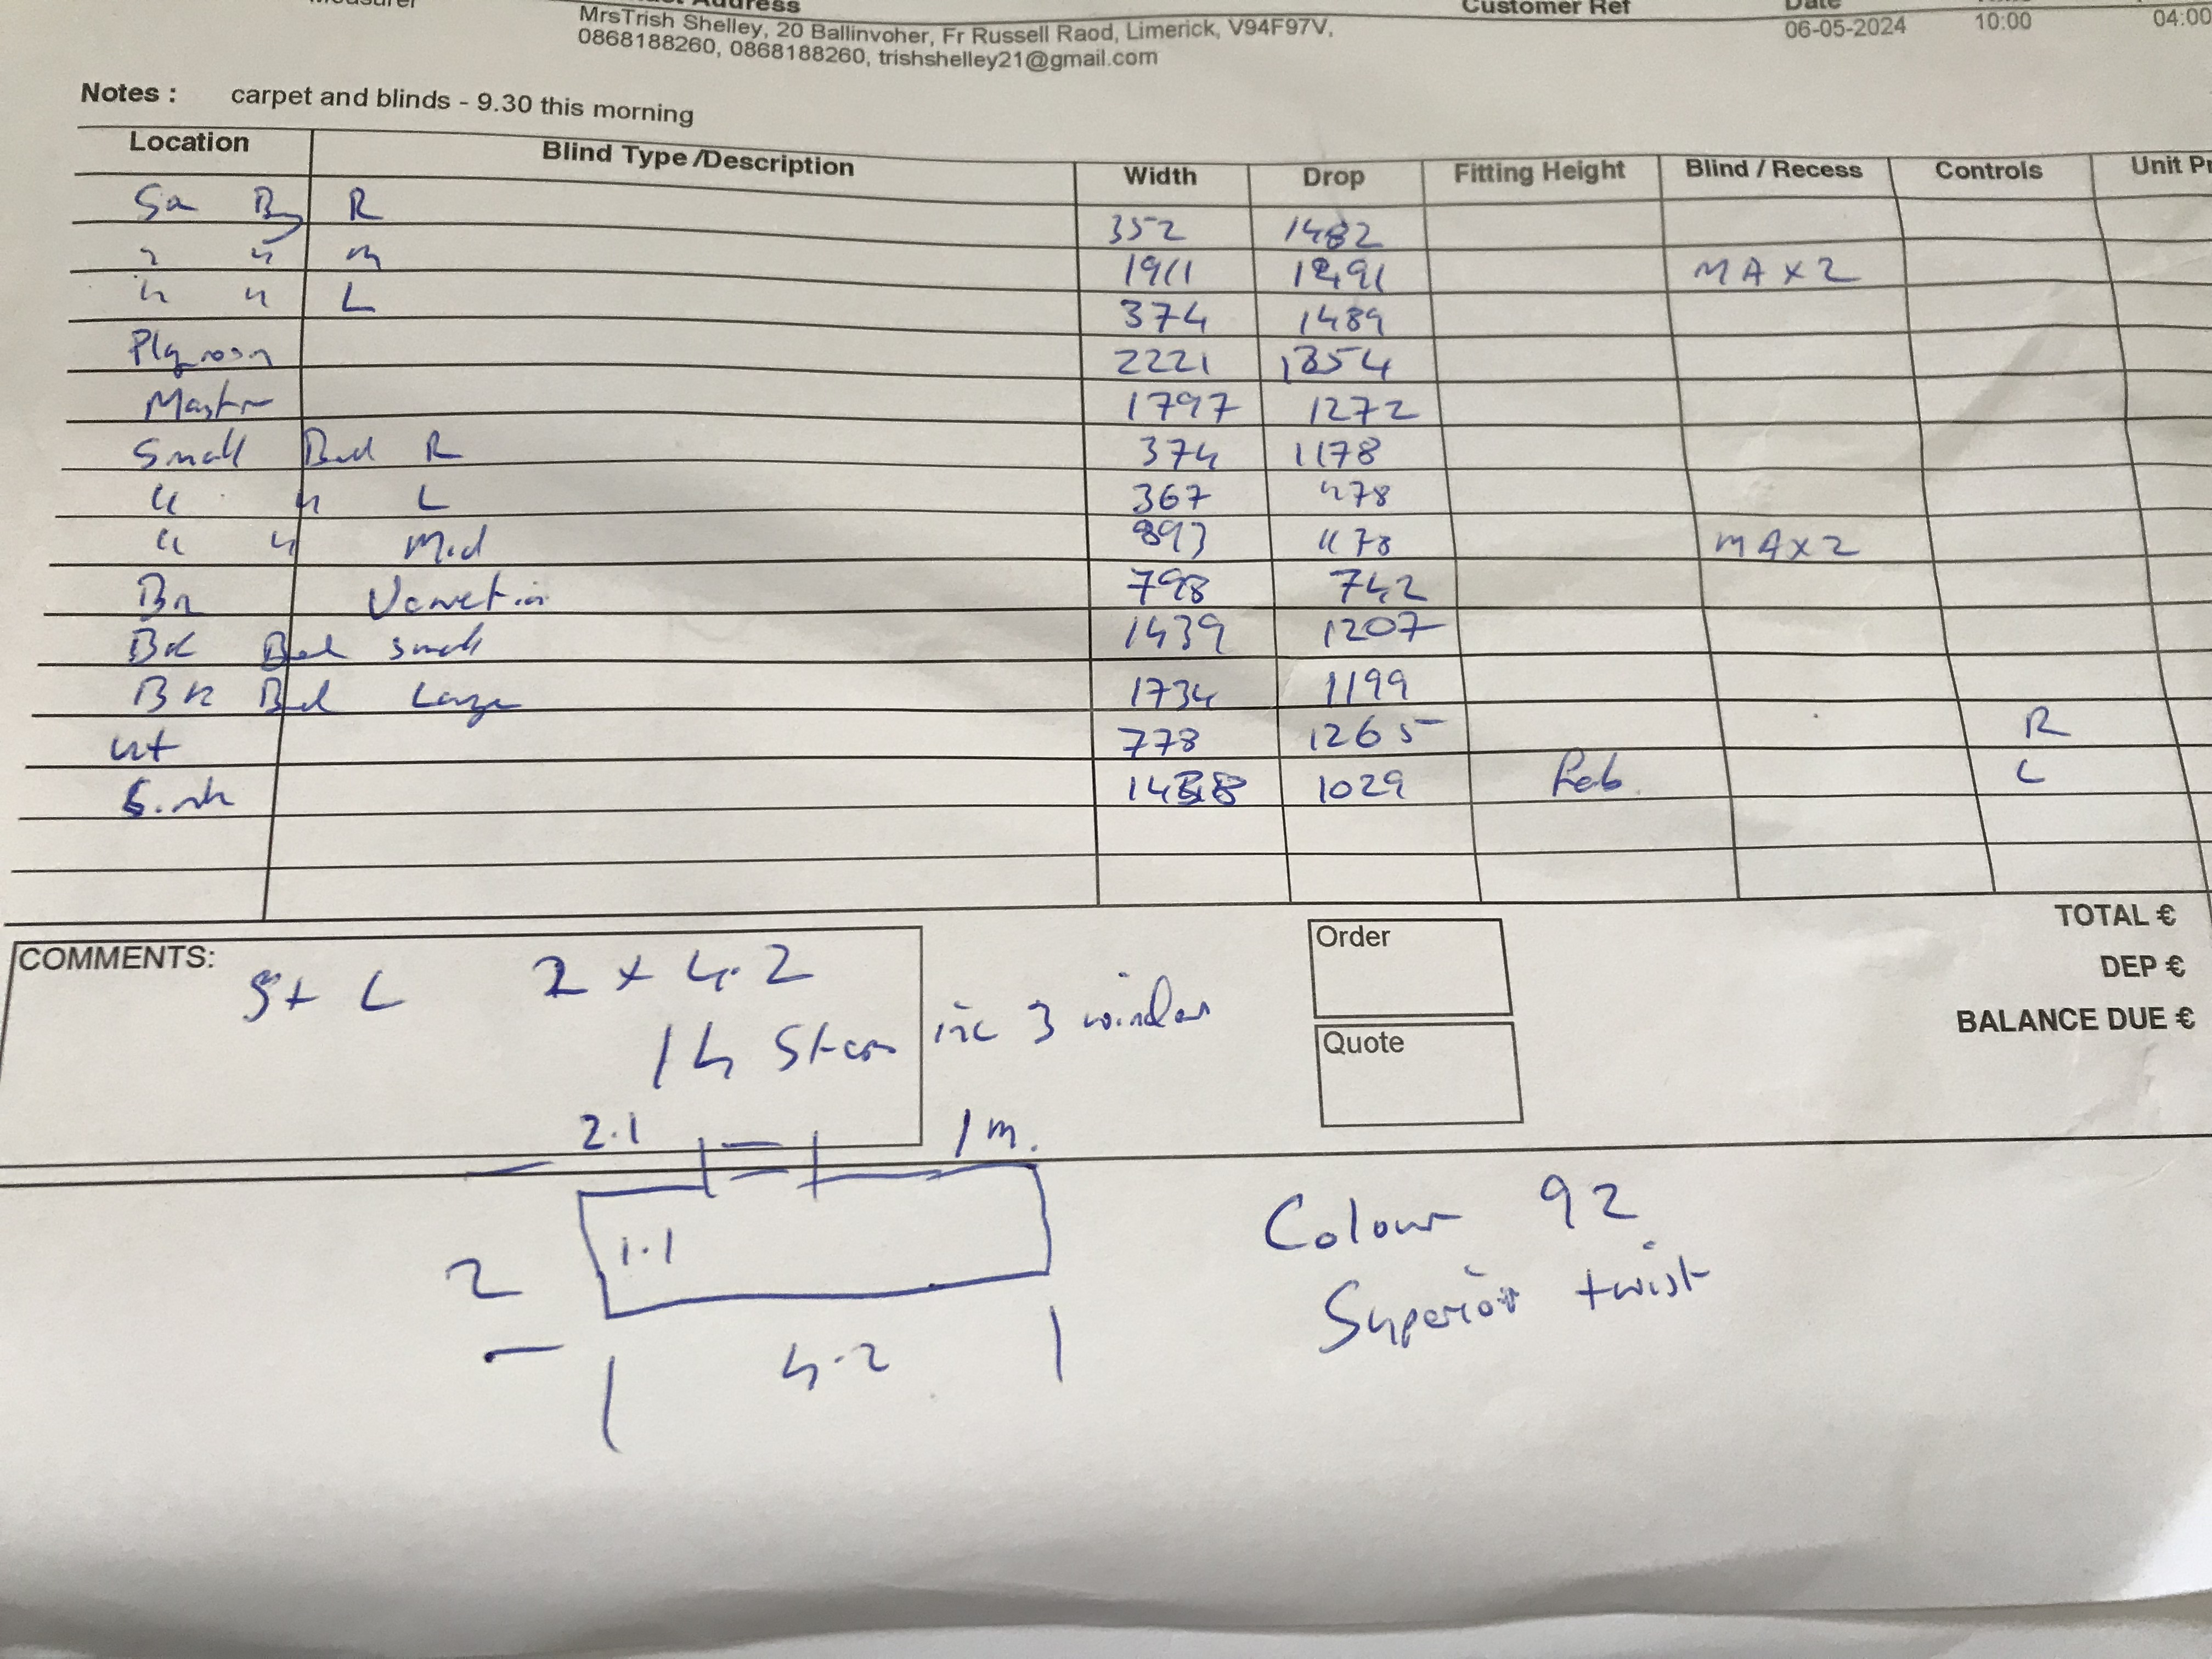 Address Customer Ref Date
MrsTrish Shelley, 20 Ballinvoher, Fr Russell Raod, Limerick, V94F97V, 06-05-2024 10:00 04:00
0868188260, 0868188260, trishshelley21@gmail.com
Notes : carpet and blinds - 9.30 this morning
Location Blind Type /Description Width Drop Fitting Height Blind / Recess Controls Unit Pr
R 352 1482
" " m 1911 1491 MAX2
" " L 374 1489
2221 1354
Mastr 1797 1272
Small Bed R 374 1178
" " L 367 1178
" " Mid 893 1178 MAX2
798 742
Bed small 1439 1207
Bk Bed Large 1734 1199
ut 778 1265 R
Sink 1029 L
COMMENTS: St L 2 x 4.2
14 inc 3
Order
Quote
TOTAL €
DEP €
BALANCE DUE €
2.1 1m.
1.1
2
4.2
Colour 92
Superior twist